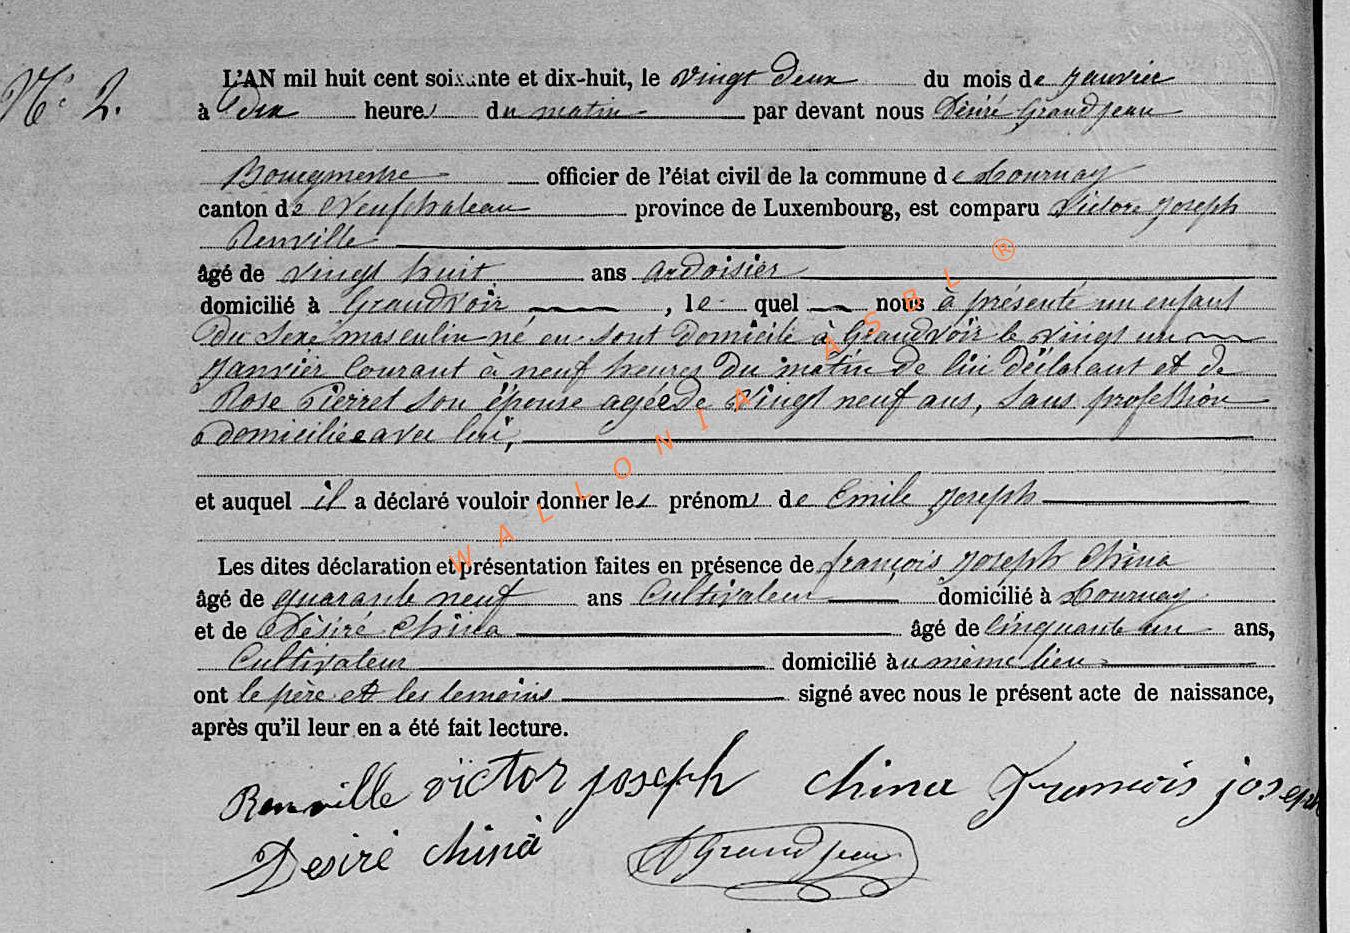 N° 2.
L'AN mil huit cent soixante et dix-huit, le vingt deux du mois de janvier
à dix heures du matin par devant nous Désiré Grandjean
Bourgmestre officier de l'état civil de la commune de Tournay
canton de Neufchateau province de Luxembourg, est comparu Victor Joseph
Renville
âgé de vingt huit ans ardoisier
domicilié à Grandvoir, lequel nous à présenté un enfant
du sexe masculin né en sont domicile à Grandvoir le vingt un
janvier courant à neuf heures du matin de lui déclarant et de
Rose Pierret son épouse agée de vingt neuf ans, sans profession
domiciliée avec lui,
et auquel il a déclaré vouloir donner les prénoms de Emile Joseph
Les dites déclaration et présentation faites en présence de françois Joseph China
âgé de quarante neuf ans Cultivateur domicilié à Tournay
et de Désiré China âgé de cinquante un ans,
Cultivateur domicilié au même lieu
ont le père et les temoins signé avec nous le présent acte de naissance,
après qu'il leur en a été fait lecture.
Renville victor joseph china François joseph
Desiré china D Grandjean
WALLONIA ASBL ®